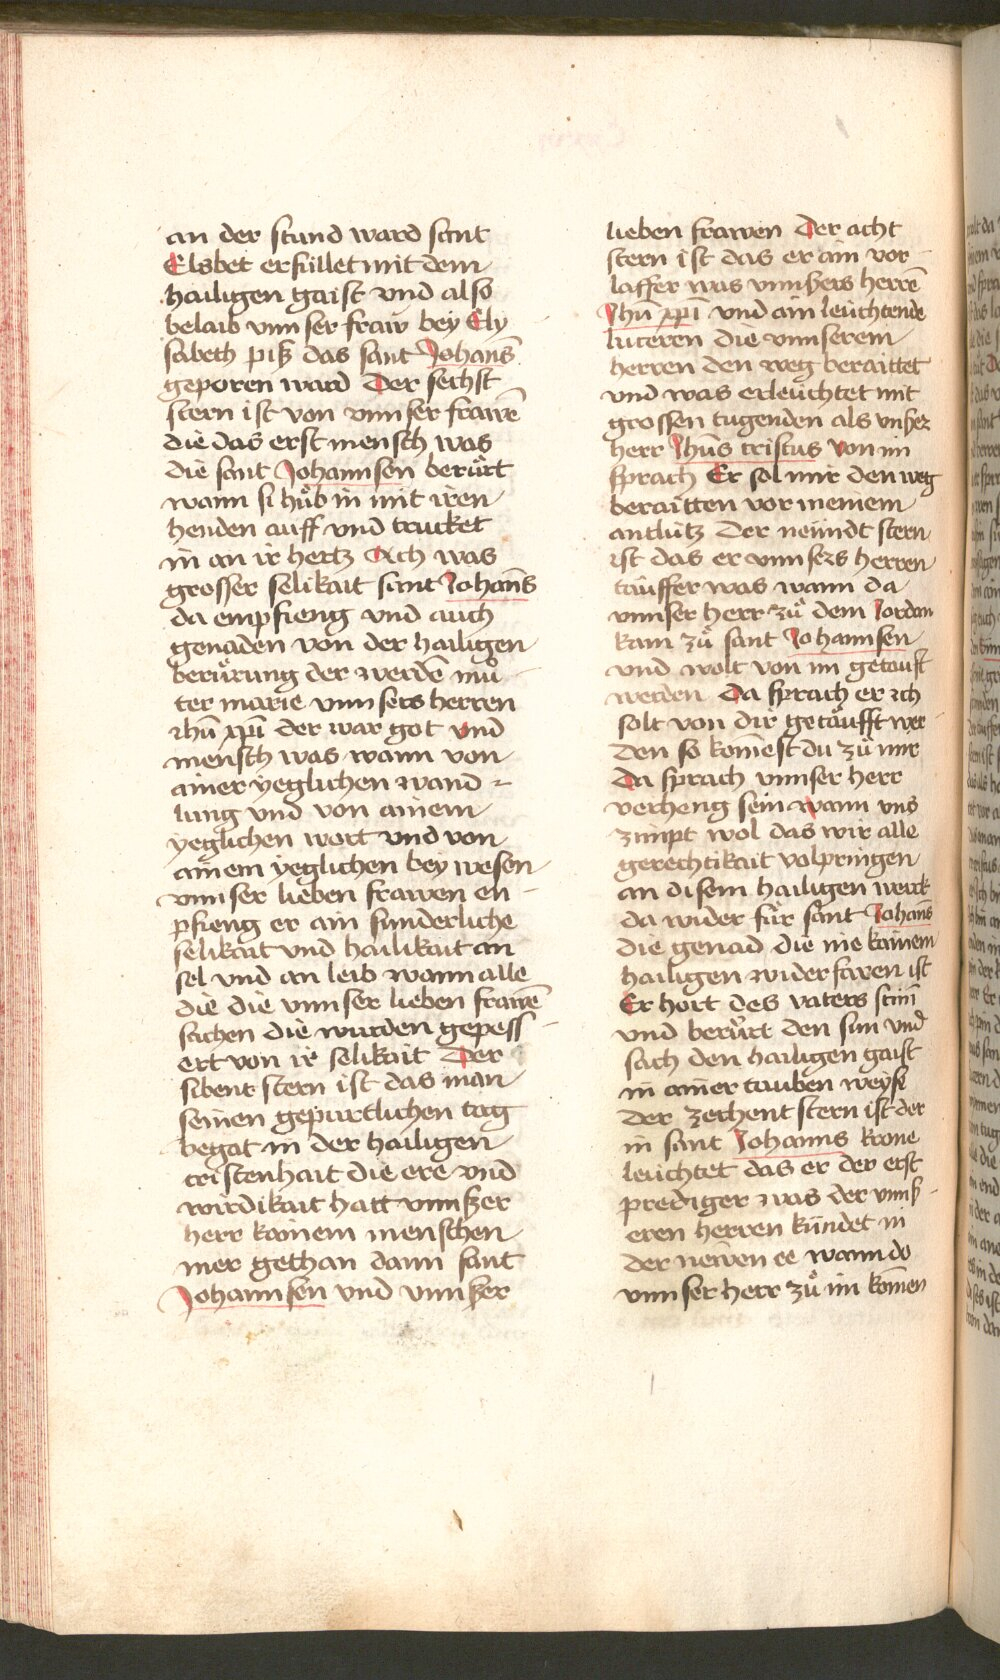 an der stund ward sant
Elsbet erfüllet mit dem
hailigen gaist vnd also
belaib vnnser fraw bey Ely
sabeth piß das sant Johans̄
geporen ward Der sechst
stern ist von vnnser frawē
die das erst mensch was
die sant Johannsen berürt
wann si hůb in mit iren
henden auff vnd trucket
in an ir hertz Ach was
grosser selikait sant Johan̄s
da empfieng vnd auch
genaden von der hailigen
berůrung der werdē mů
ter marie vnnsers herren
ihū xp̄i der war got vnd
mensch was wann von
ainer yeglichen wand
lung vnd von ainem
yeglichen wort vnd von
ainem yeglichen bey wesen
vnnser lieben frawen en
pfieng er ain sunderliche
selikait vnd hailikait an
sel vnd an leib wann alle
die die vnnser lieben frawē
sachen die wurden gepess
ert von ir selikait Der
sibent stern ist das man
seinen gepurtlichen tag
begat in der hailigen
cristenhait die ere vnd
wirdikait hatt vnnßer
herr kainem menschen
mer gethan dann sant
Johannsen vnd vnnßer
lieben frawen Der acht
stern ist das er ain vor
laffer was vnnßers herrē
Jhū xp̄i vnd ain leüchtende
luceren die vnnserem
herren den weg beraittet
vnd was erleüchtet mit
grossen tugenden als vnßer
herr Jhūs cristus Von im
sprach Er sol mir den weg
beraitten vor meinem
antlütz Der neündt stern
ist das er vnnsers herren
täuffer was wann da
vnnser herr zů dem Jordan
kam zů sant Johannsen
vnd wolt von im getauft
werden Da sprach er ich
solt von dir getäufft wer
den so kom̄est du zů mir
Da sprach vnnser herr
verheng sein wann vns
zimpt wol das wir alle
gerechtikait volpringen
an disem hailigen werck
da wider für sant Johans̄
die genad die nie kainem
hailigen widerfaren ist
Er hort des vaters stim̄
vnd berürt den sun vnd
sach den hailigen gaist
in ainer tauben weyß
Der zechent stern ist der
in sant Johanns krone
leüchtet das er der erst
prediger was der vnnß
eren herren kündet in
der newen ee wann do
vnnser herr zů im komen